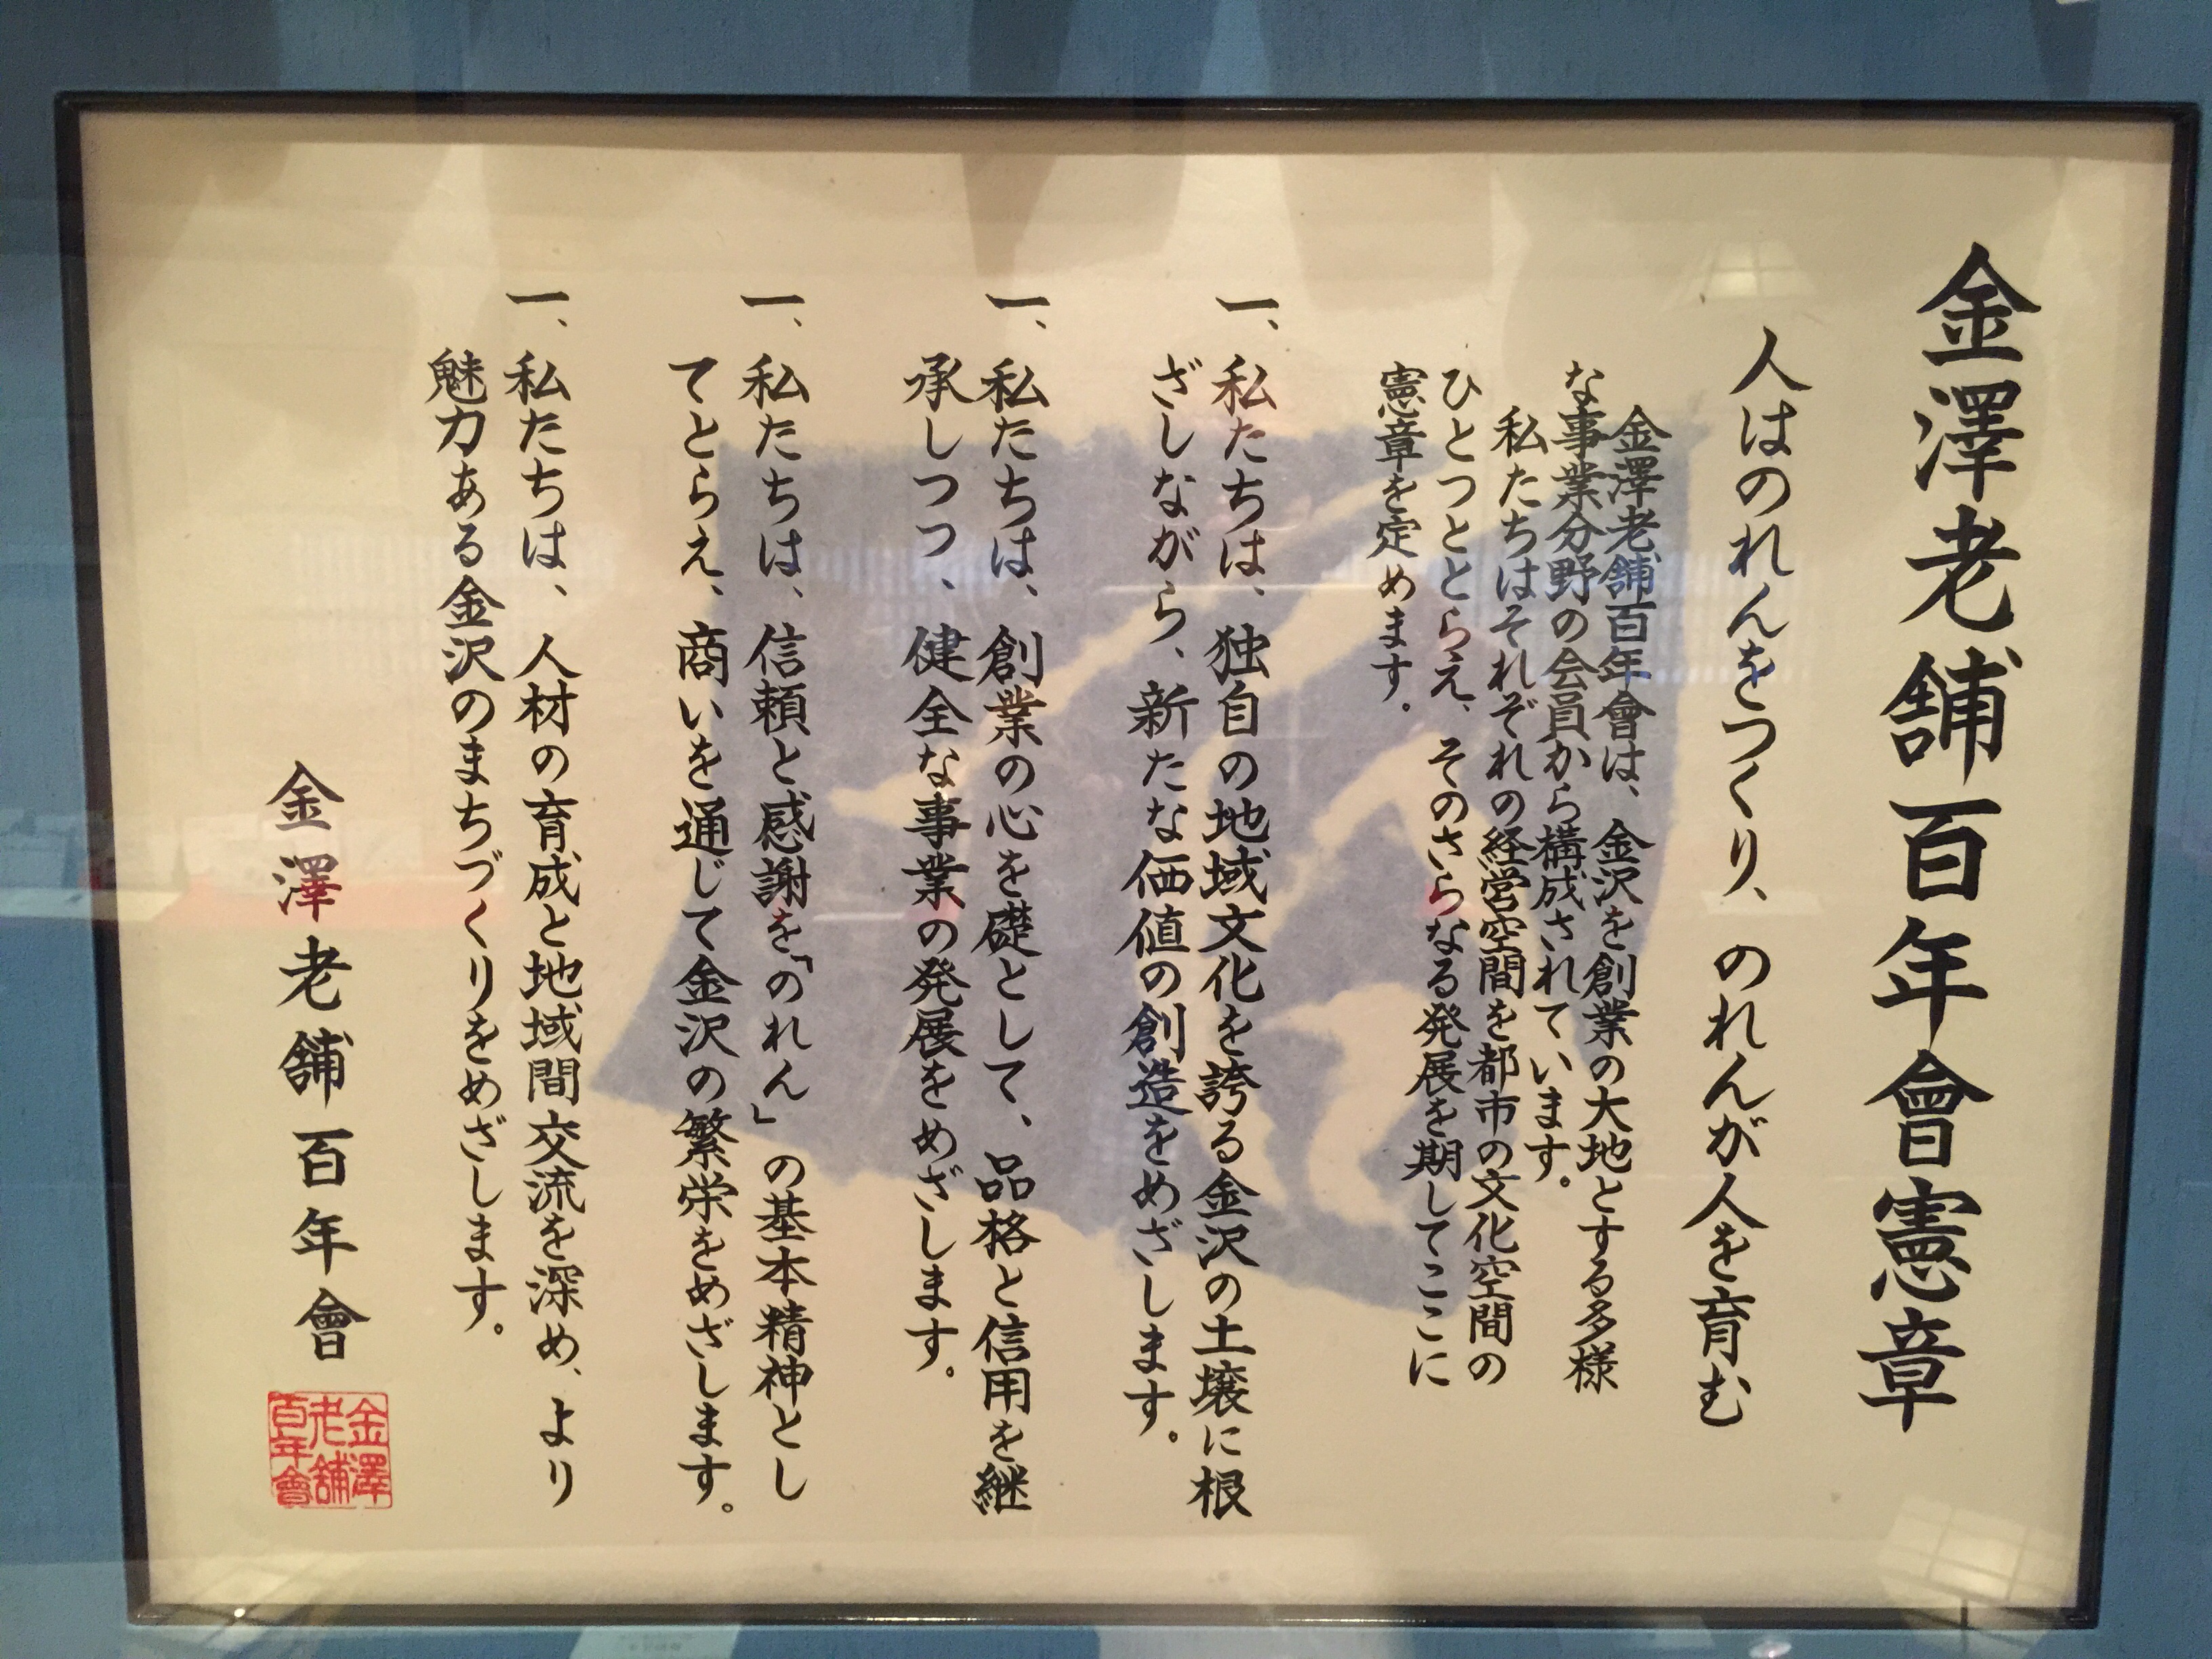 金澤老舗百年會憲章
人はのれんをつくり、のれんが人を育む
金澤老舗百年會は、金沢を創業の大地とする多様
な事業分野の会員から構成されています。
私たちはそれぞれの経営空間を都市の文化空間の
ひとつととらえ、そのさらなる発展を期してここに
憲章を定めます。
一、私たちは、独自の地域文化を誇る金沢の土壌に根
ざしながら、新たな価値の創造をめざします。
一、私たちは、創業の心を礎として、品格と信用を継
承しつつ、健全な事業の発展をめざします。
一、私たちは、信頼と感謝を「のれん」の基本精神とし
てとらえ、商いを通じて金沢の繁栄をめざします。
一、私たちは、人材の育成と地域間交流を深め、より
魅力ある金沢のまちづくりをめざします。
金澤老舗百年會
金澤
老舗
百年會